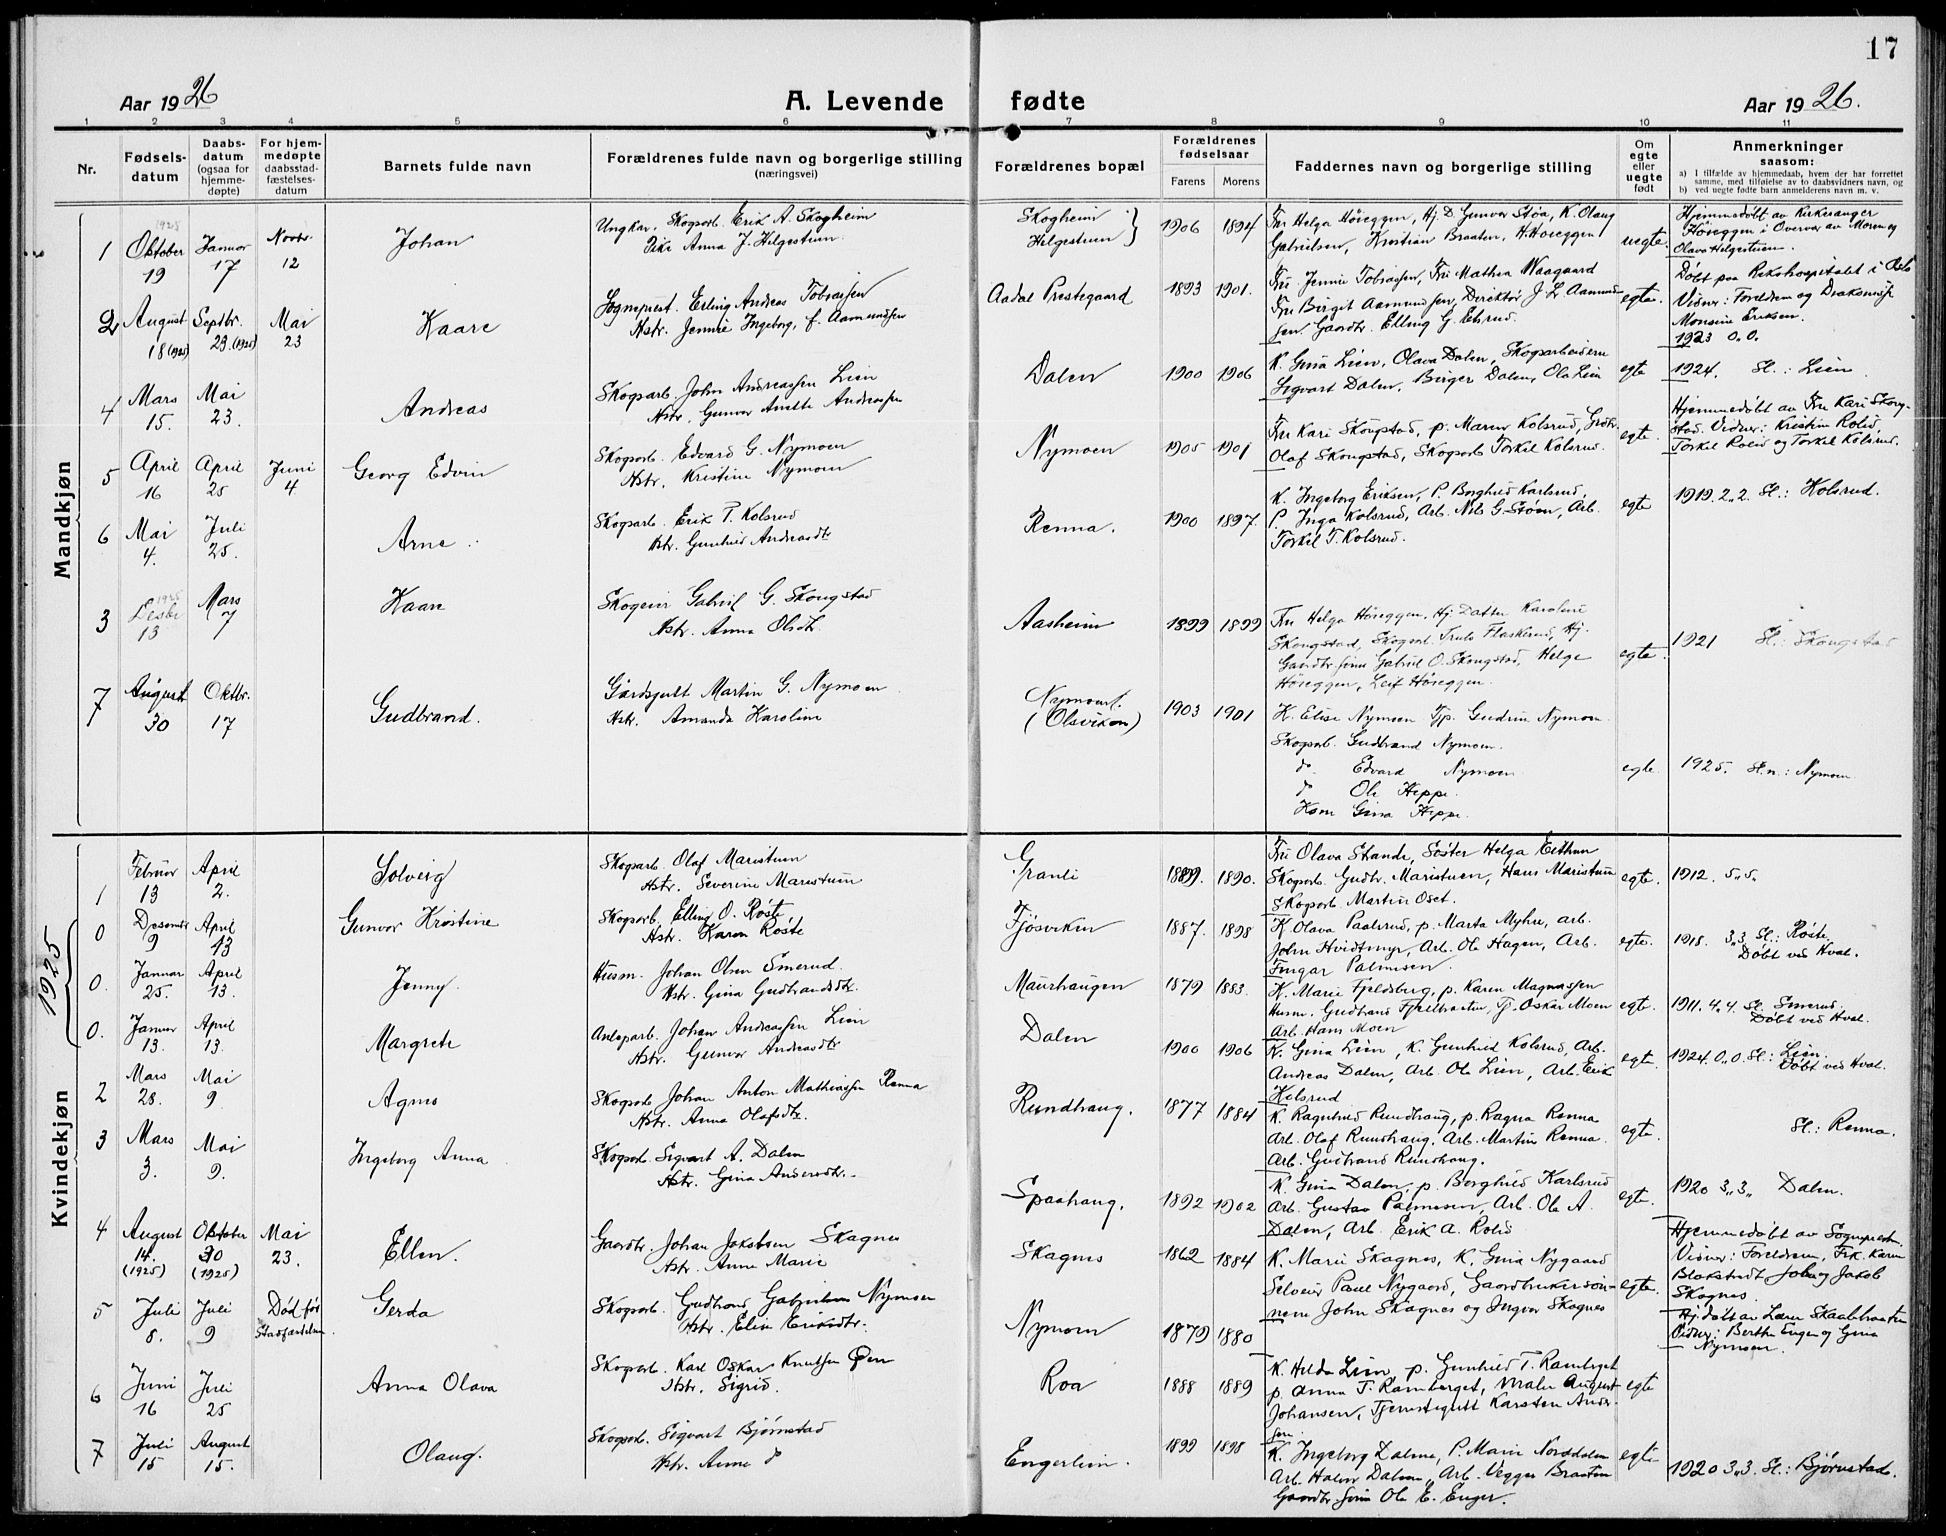 17
Aar 1926
A. Levende fødte
Aar 1926.
1 2 3 4 5 6 7 8 9 10 11
Nr.
Fødsels-
datum
Daabs-
datum
(ogsaa for
hjemme-
døpte)
For hjem-
medøpte
daabsstad-
fæstelses-
datum
Barnets fulde navn
Forældrenes fulde navn og borgerlige stilling
(næringsvei)
Forældrenes bopæl
Forældrenes
fødselsaar
Farens Morens
Faddernes navn og borgerlige stilling
Om
egte
eller
uegte
født
Anmerkninger
saasom:
a) I tilfælde av hjemmedaab, hvem der har forrettet
samme, med tilføielse av to daabsvidners navn, og
b) ved uegte fødte barn anmelderens navn m. v.
Mandkjøn
1 1925 Oktober 19 Januar 17 Novbr. 12 Johan
Ungkar, Skogsarb. Erik A. Skogheim
Pike Anna J. Helgestuen
Skogheim
Helgestuen
1906 1894
Fru Helga Høseggen, Hj. D. Gunvor Støa, K. Olaug
Gabrielsen, Kristian Braaten, H. Høseggen
uegte.
Hjemmedøbt av Kirkesanger
Høseggen i Overvær av Moren og
Olava Helgestuen.
2 August 18 (1925) Septbr. 29. (1925) Mai 23 Kaare
Sogneprest. Erling Andreas Tobiassen
Hstr. Jennie Ingeborg, f. Aamundsen
Aadal Prestegaard
1893 1901.
Fru Jennie Tobiassen, Fru Mathea Waagaard
Fru Birgit Aamundsen, Direktør J. Lr Aamund-
sen. Gaardbr. Elling G. Elsrud.
egte.
Døbt paa Rikshospitalet i Oslo
Vidner: Foreldrene og Diakonisse
Monsine Eriksen.
1923 0.0.
4 Mars 15. Mai 23. Andreas
Skogsarb. John Andreassen Lien
Hstr. Gunvor Anette Andreassen
Dalen
1900 1906
K. Gina Lien, Olava Dalen, Skogsarbeiderne
Sigvart Dalen, Birger Dalen, Ola Lien
egte
1924. Sl.: Lien
5 April 16 April 25 Juni 4 Georg Edvin
Skogsarb. Edvard G. Nymoen
Hstr. Kristine Nymoen
Nymoen
1905 1901
Fru Kari Skougstad, p. Maren Kolsrud, Grdbr.
Olaf Skougstad, Skogsarb. Torkil Kolsrud.
egte.
Hjemmedøbt av Fru Kari Skoug-
stad. Vidner: Kristin Rolid,
Torkel Rolid og Torkel Kolsrud.
6 Mai 4. Juli 25. Arne
Skogsarb. Erik T. Kolsrud
Hstr. Gunhild Andreasdtr.
Renna.
1900 1897.
K. Ingeborg Eriksen, P. Borghild Karlsrud,
P. Inga Kolsrud, Arb. Nils G. Støen, Arb.
Torkil T. Kolsrud.
egte
1919. 2.,2. Sl.: Kolsrud.
3 1925 Desbr 13 Mars 7 Kaare
Skogeier Gabriel G. Skougstad
Hstr. Anna Olsdtr.
Aasheim
1899 1899
Fru Helga Høseggen, Hj. Datter Karoline
Skougstad, Skogsarb. Truls Flaskerud, Hj.
Gaardbr.sønn Gabriel O. Skougstad, Helge
Høseggen, Leif Høseggen.
egte.
1921 Sl.: Skougstad
7 August 30 Oktbr. 17 Gudbrand.
Gårdsgutt Martin G. Nymoen
Hstr. Amanda Karoline
Nymoen.
(Olsviken)
1903 1901
K. Elise Nymoen Tjp. Gudrun Nymoen.
Skogsarb. Gudbrand Nymoen.
do Edvard Nymoen
do Ole Heppe.
Kone Gina Heppe.
egte.
1925. Sl.n.: Nymoen
Kvindekjøn
1 Februar 13 April 2. Solveig
Skogsarb. Olaf Maristuen
Hstr. Severine Maristuen
Granli
1889. 1890.
Fru Olava Strande, Søster Helga Eithun
Skogsarb. Gudbr. Maristuen, Hans Maristuen
Skogsarb. Martin Oset.
egte.
1912. 5.,5.
1925
0 Desember 9 April 13 Gunvor Kristine
Skogsarb. Elling O. Røste
Hstr. Karen Røste
Fjøsviken
1887. 1898
K. Olava Paalsrud, p. Marta Myhre, arb.
John Hvidtmyr, Arb. Ole Hagen, Arb.
Fingar Palmesen.
egte.
1918. 3.,3 Sl.: Røste.
Døbt ved Hval.
0. Januar 25. April 13. Jenny.
Husm. Johan Olsen Smerud.
Hstr. Gina Gudbrandsdtr.
Maurhaugen
1879 1883.
K. Marie Fjeldberg, p. Karen Magnussen
Husm. Gudbrand Fjeldbraaten, Tj. Oskar Moen
Arb. Hans Moen
egte.
1911. 4.,4. Sl. Smerud.
Døbt ved Hval.
0. Januar 13. April 13. Margrete
Anlegsarb. Johan Andreassen Lien
Hstr. Gunvor Andreasdtr.
Dalen
1900 1906
K. Gina Lien, K. Gunhild Kolsrud, Arb.
Andreas Dalen, Arb. Ole Lien, Arb. Erik
Kolsrud
egte.
1924. 0.,0. Sl.: Lien.
Døbt ved Hval.
2 Mars 28. Mai 9. Agnes
Skogsarb. Johan Anton Mathiassen Renna
Hstr. Anna Olafsdtr.
Rundhaug.
1877 1884
K. Ragnhild Rundhaug, p. Ragna Renna
Arb. Olaf Rundhaug, Arb. Martin Renna.
Arb. Gudbrand Rundhaug.
egte.
Sl.: Renna.
3 Mars 3. Mai 9. Ingeborg Anna
Skogsarb. Sigvart A. Dalen
Hstr. Gina Andersdtr.
Spaahaug.
1892 1902
K. Gina Dalen, p. Borghild Karlsrud
Arb. Gustav Palmesen, Arb. Ole A.
Dalen, Arb. Erik A. Rolid
egte.
1920 3.,3., Dalen.
4 August 14. (1925) Oktober 30 (1925) Mai 23. Ellen.
Gaardbr. Johan Jakobsen Skagnes
Hstr. Anne Marie
Skagnes
1862 1884
K. Marie Skagnes, K. Gina Nygaard
Selveier Paul Nygaard, Gaardbrukersøn-
nene John Skagnes og Ingvar Skagnes
egte.
Hjemmedøbt av Sogneprest.
Vidner: Foreldrene, Frk. Karen
Blakstvedt John og Jakob
Skagnes.
5 Juli 8. Juli 9 Død før Stadfæstelsen. Gerda
Skogsarb. Gudbrand Gabrielsen Nymoen
Hstr. Elise Eriksdtr.
Nymoen
1879 1880
Hj.døbt av Lærer Skaalbraaten
Vidner: Berthe Enger og Gina
Nymoen.
6 Juni 16 Juli 25 Anna Olava
Skogsarb. Karl Oskar Knutsen Øen
Hstr. Sigrid.
Roa
1888 1889
K. Hilda Lien, p. Gunhild T. Ramberget
p. Anna T. Ramberget, Maler August
Johansen, Tjenestegutt Karsten Ander-
sen.
egte
7 Juli 15 August 15. Olaug.
Skogsarb. Sigvart Bjørnstad
Hstr. Anne do
Engerlien.
1899 1898
K. Ingeborg Dalene, P. Marie Norddalen
Arb. Halvor Dalen, Arb. Vegger Braaten
Gaardbr. sønn Ole E. Enger.
egte
1920 3.,3. Sl.: Bjørnstad.